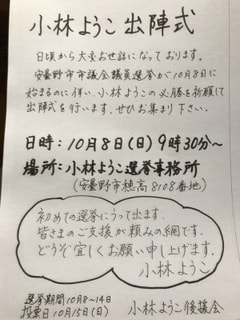 小林ようこ出陣式
日頃から大変お世話になっております。
安曇野市市議会議員選挙が10月8日に
始まるのに伴い、小林ようこの必勝を祈願して
出陣式を行います。ぜひお集まり下さい。
日時：10月8日(日)9時30分〜
場所：小林ようこ選挙事務所
(安曇野市穂高8108番地)
初めての選挙にうって出ます。
皆さまのご支援が頼みの綱です。
どうぞ宜しくお願い申し上げます。
小林ようこ
選挙期間10月8〜14日
投票日10月15日(日)
小林ようこ後援会